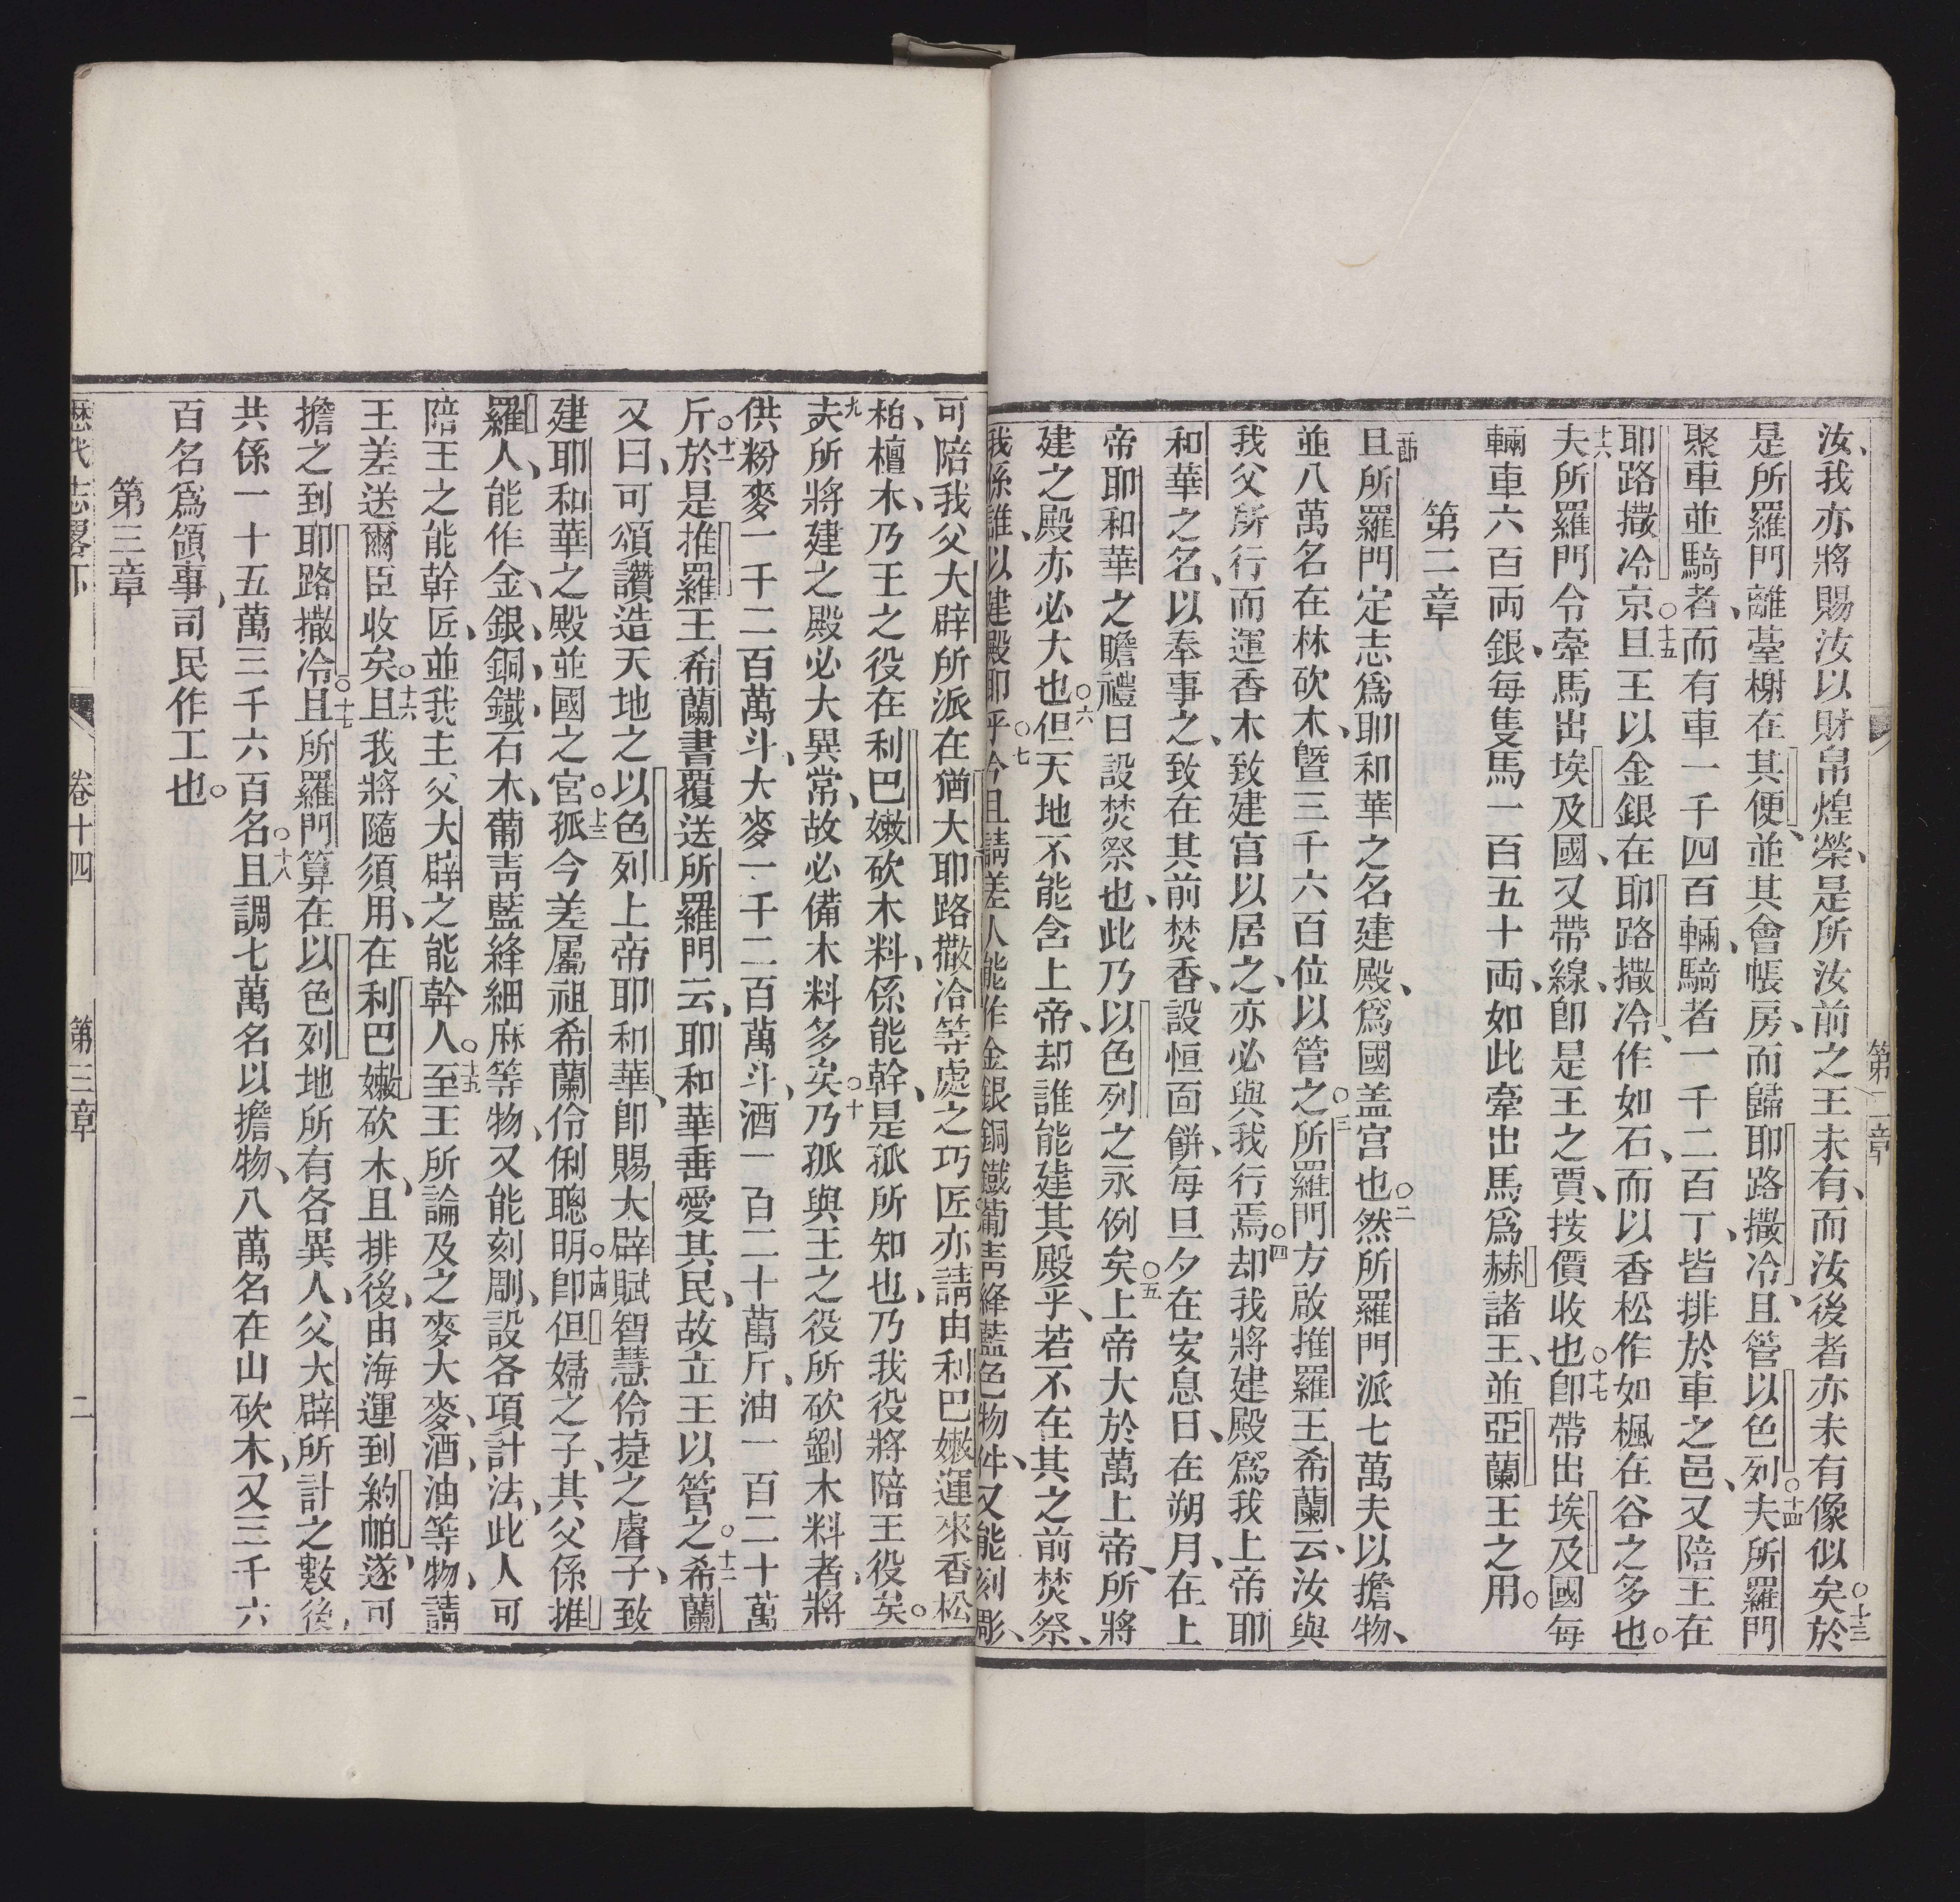 第二章
汝、我亦將賜汝以財帛煌榮、是所汝前之王未有、而汝後者亦未有像似矣○十三於
是所羅門離臺榭在其便、並其會帳房、而歸耶路撒冷、且管以色列○十四夫所羅門
聚車並騎者、而有車一千四百輛、騎者一千二百丁、皆排於車之邑、又陪王在
耶路撒冷京○十五且王以金銀在耶路撒冷、作如石、而以香松作如楓在谷之多也○
十六夫所羅門令牽馬出埃及國、又帶線、卽是王之賈、按價收也○十七卽帶出埃及國每
輛車六百両銀、每隻馬一百五十両、如此牽出馬爲赫諸王、並亞蘭王之用○
第二章
一節且所羅門定志爲耶和華之名建殿、爲國盖宫也○二然所羅門派七萬夫以擔物、
並八萬名在林砍木、曁三千六百位以管之○三所羅門方啟推羅王希蘭云、汝與
我父所行而運香木、致建宮以居之、亦必與我行焉○四却我將建殿爲我上帝耶
和華之名、以奉事之、致在其前焚香、設恒面餅、每旦夕在安息日、在朔月、在上
帝耶和華之瞻禮日設焚祭也、此乃以色列之永例矣○五上帝大於萬上帝、所將
建之殿亦必大也○六但天地不能含上帝、却誰能建其殿乎、若不在其之前焚祭、
我係誰、以建殿耶乎○七今且請差人能作金銀銅鐵葡靑絳藍色物件、又能刻彫、
可陪我父大辟所派在猶大耶路撒冾等處之巧匠亦請由利巴嫩運來香松
、柏、檀木、乃王之役在利巴嫩砍木料、係能幹、是孤所知也、乃我役將陪王役矣○
九夫所將建之殿必大異常、故必備木料多矣○十乃孤與王之役所砍劉木料者、將
供粉麥一千二百萬斗、大麥一千二百萬斗、酒一百二十萬斤、油一百二十萬
斤○十一於是推羅王希蘭書覆送所羅門云、耶和華垂愛其民、故立王以管之○十二希蘭
又曰、可頌讚造天地之以色列上帝耶和華、卽賜大辟賦智慧伶㨗之睿子、致
建耶和華之殿並國之宮○十三孤今差屬祖希蘭伶俐聰明○十四卽但婦之子、其父係推
羅人、能作金、銀、銅、鐵、石、木、葡靑藍絳細麻等物、又能刻剛、設各項計法、此人可
陪王之能幹匠、並我主父大辟之能幹人○十五至王所論及之麥大麥、酒、油等物、請
王差送爾臣收矣○十六且我將隨須用、在利巴嫩砍木、且排後、由海運到約帕、遂可
擔之到耶路撒冷○十七且所羅門算在以色列地所有各異人、父大辟所計之數後、
共係一十五萬三千六百名○十八且調七萬名以擔物、八萬名在山砍木、又三千六
百名爲領事、司民作工也○
第三章
歷代志畧下 卷十四 第三章 二